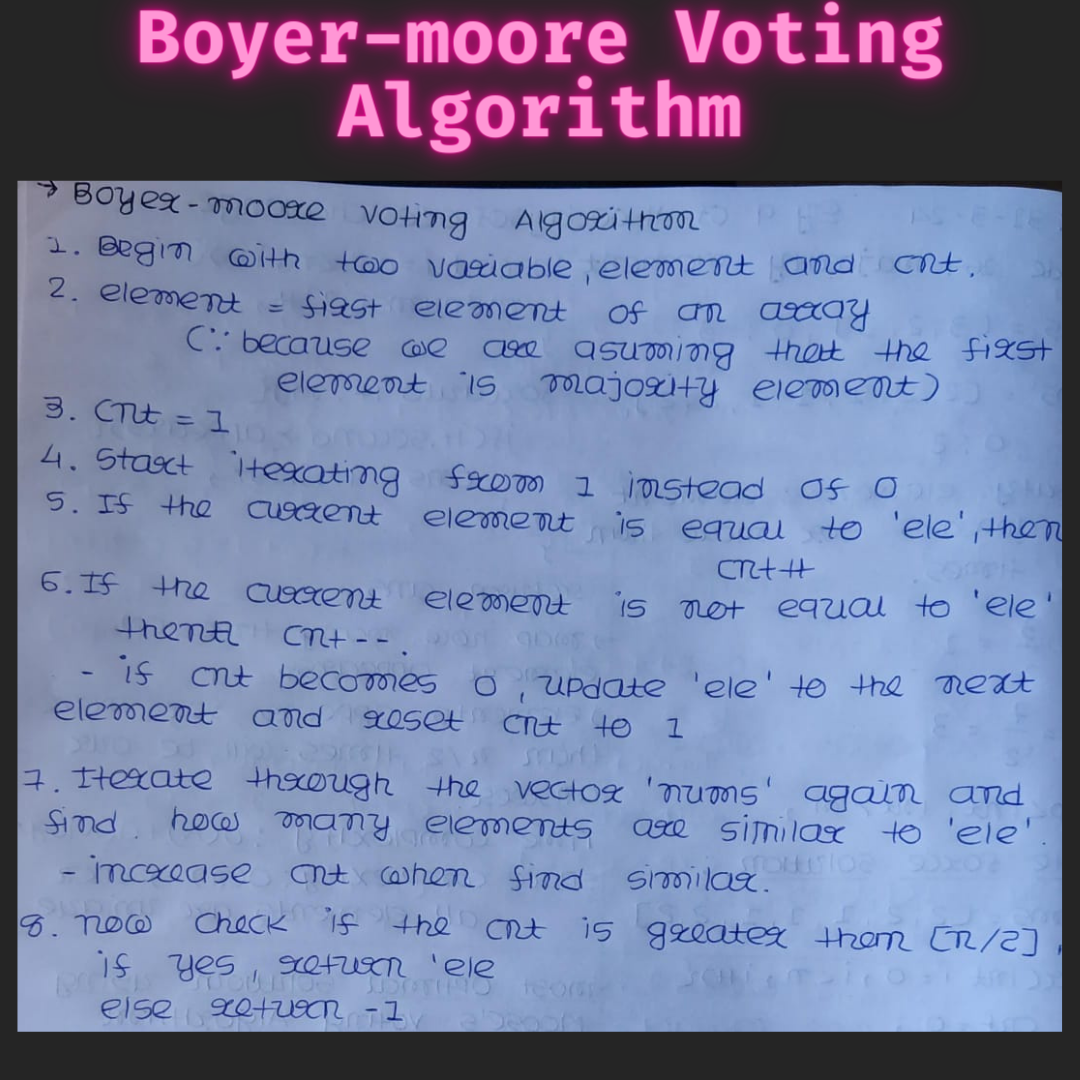 Boyer-moore Voting
Algorithm
→ Boyer-moore voting Algorithm
1. Begin with two variable, element and cnt.
2. element = first element of an array
(∵ because we are asuming that the first
element is majority element)
3. cnt = 1
4. Start iterating from 1 instead of 0
5. If the current element is equal to 'ele', then
cnt++
6. If the current element is not equal to 'ele'
then cnt--.
- if cnt becomes 0, update 'ele' to the next
element and reset cnt to 1
7. Iterate through the vector 'nums' again and
find how many elements are similar to 'ele'.
- increase cnt when find similar.
8. now check if the cnt is greater then [n/2],
if yes, return 'ele
else return -1